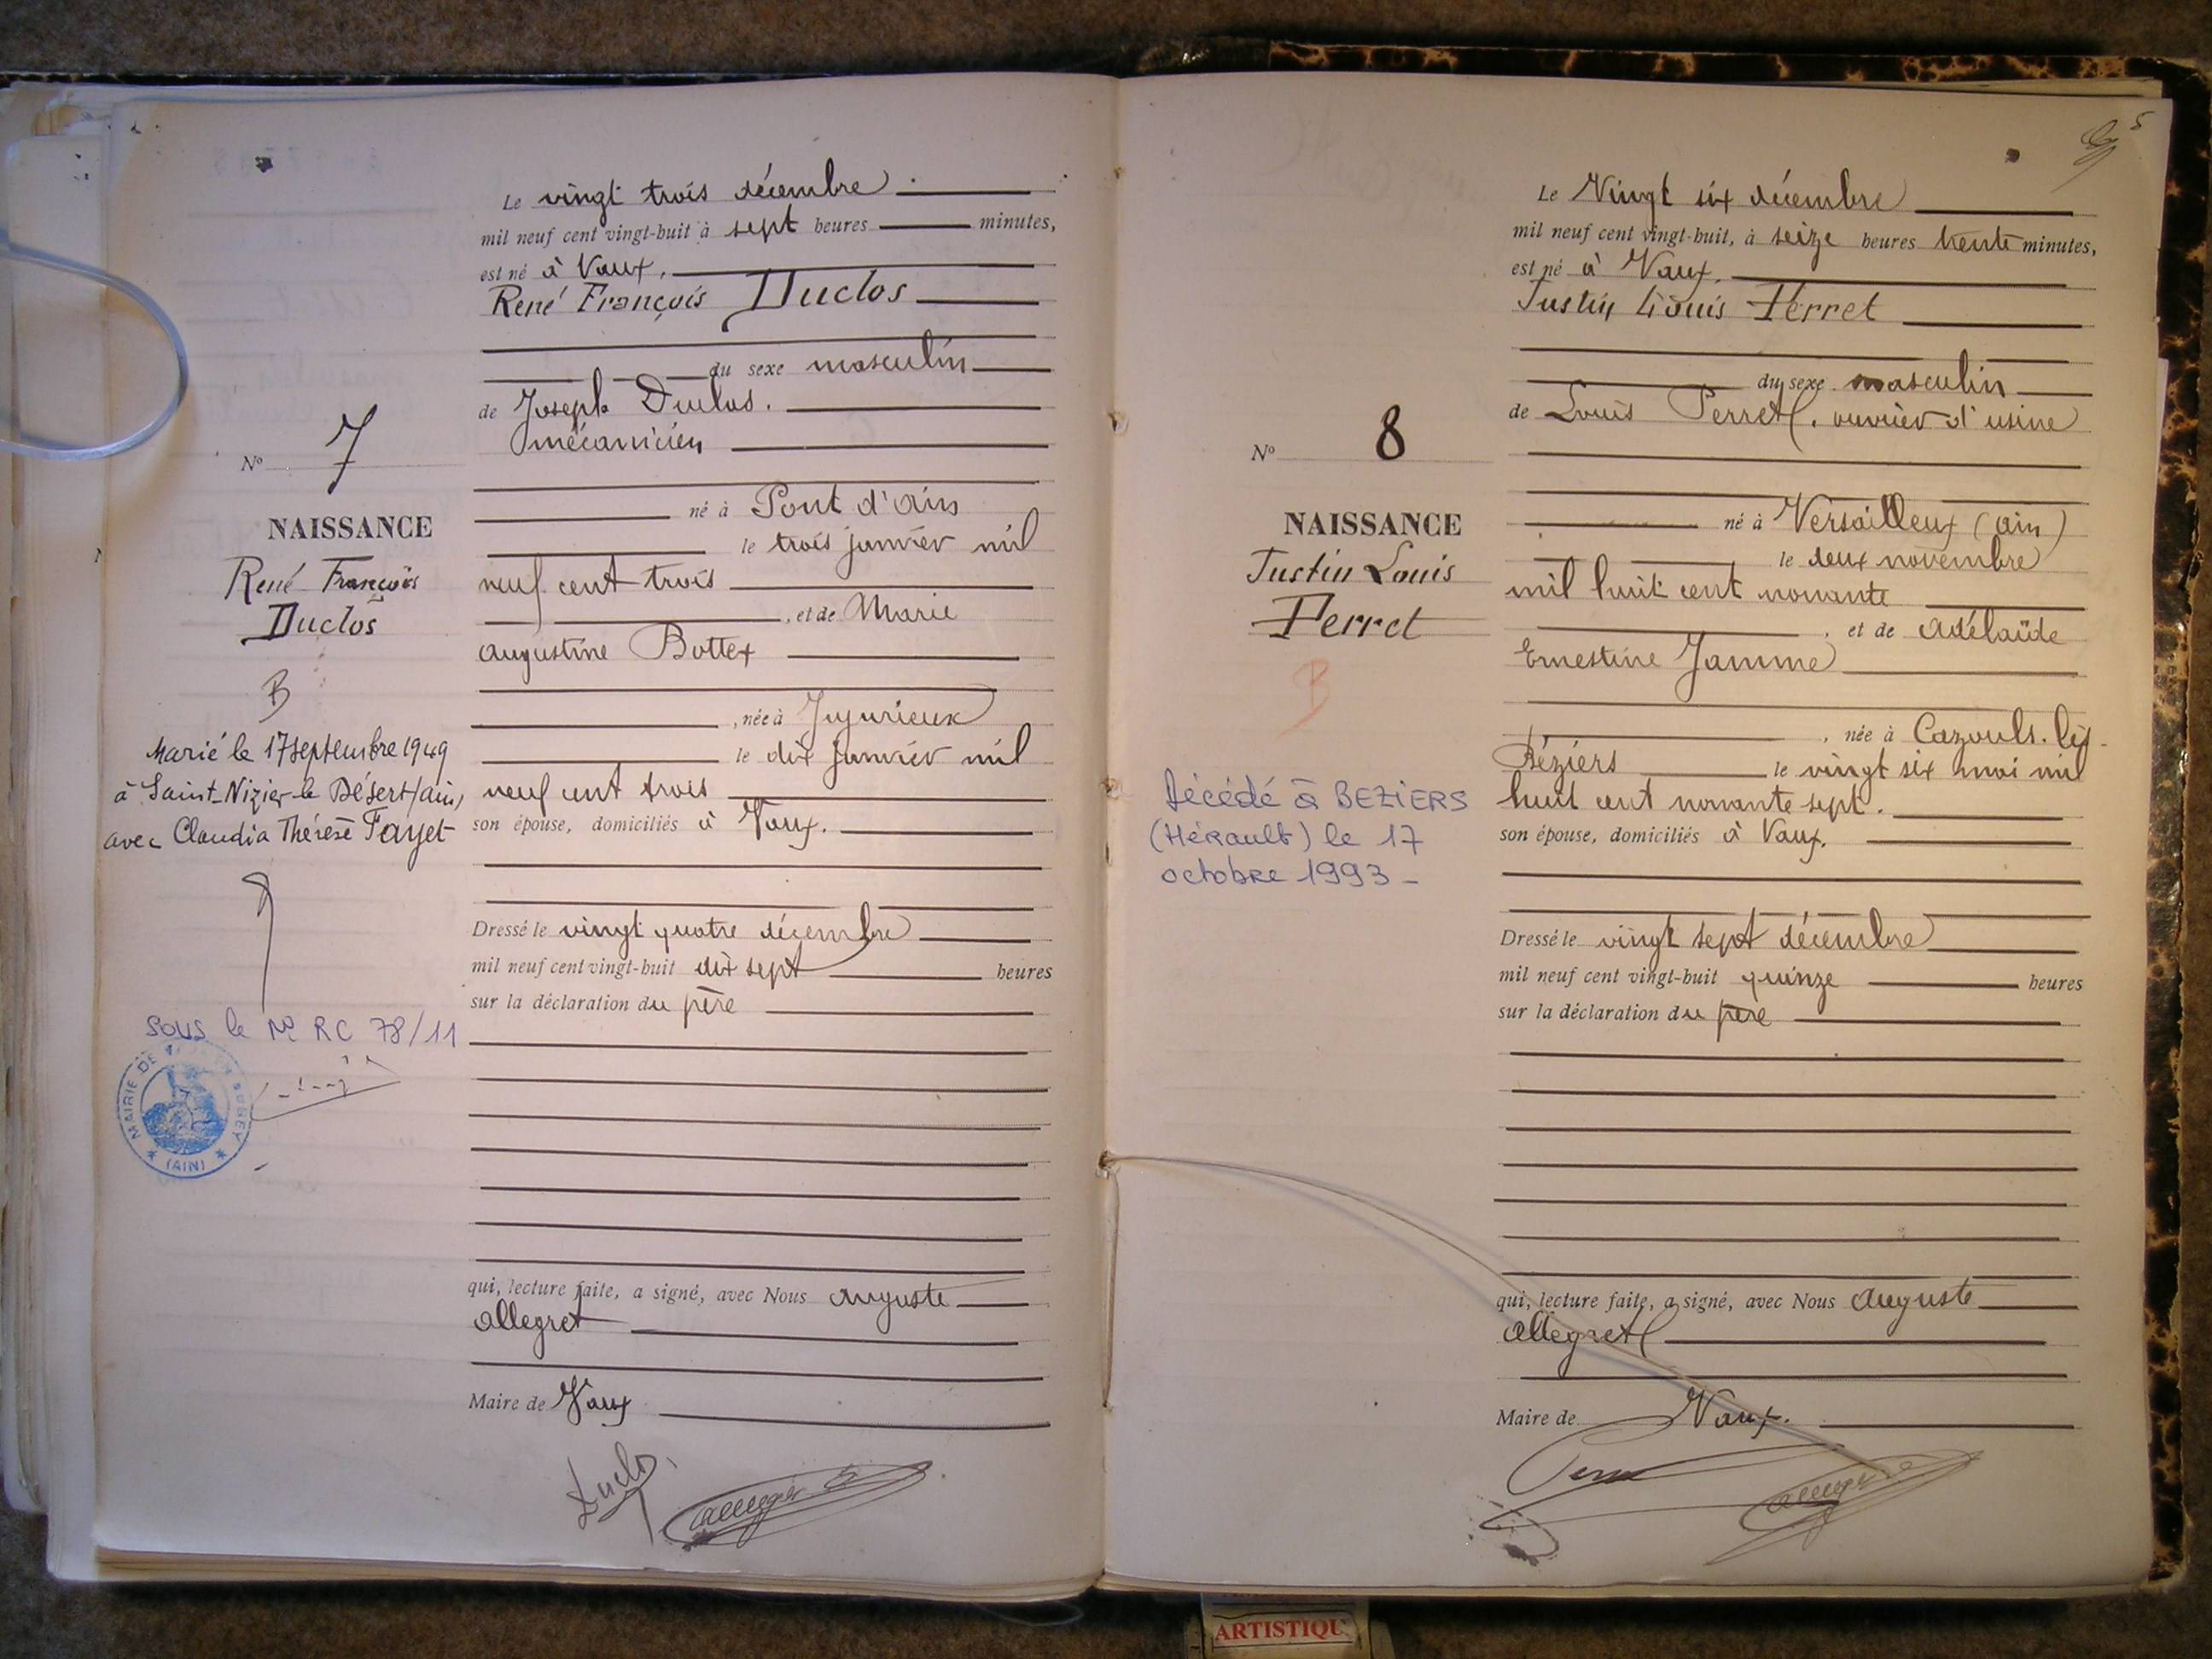 Le vingt trois décembre
mil neuf cent vingt-huit à sept heures minutes,
est né à Vaux.
René François Duclos
du sexe masculin
de Joseph Duclos.
mécanicien
né à Pont d'ain
le trois janvier mil
neuf cent trois
, et de Marie
augustine Bottex
, née à Jujurieux
le dix janvier mil
neuf cent trois
son épouse, domiciliés à Vaux.
Dressé le vingt quatre décembre
mil neuf cent vingt-huit dix sept heures
sur la déclaration du père
qui, lecture faite, a signé, avec Nous auguste
allegret
Maire de Vaux
Duclos
No 7
NAISSANCE
René François
Duclos
B
Marié le 17 septembre 1949
à Saint-Nizier-le Désert (ain)
avec Claudia Thérèse Fayet
sous le No RC 78/11
MAIRIE DE BUGEY
(AIN)
5
Le Vingt six décembre
mil neuf cent vingt-huit, à seize heures trente minutes,
est né à Vaux.
Justin Louis Perret
du sexe masculin
de Louis Perret, ouvrier d'usine
né à Versailleux (ain)
le deux novembre
mil huit cent nonante
, et de adélaïde
Ernestine Jamme
, née à Cazouls. les-
Béziers le vingt six mai mil
huit cent nonante sept.
son épouse, domiciliés à Vaux.
Dressé le vingt sept décembre
mil neuf cent vingt-huit quinze heures
sur la déclaration du père
qui, lecture faite, a signé, avec Nous auguste
allegret
Maire de Vaux.
No 8
NAISSANCE
Justin Louis
Perret
B
Décédé à BEZIERS
(Hérault) le 17
octobre 1993 -
ARTISTIQU